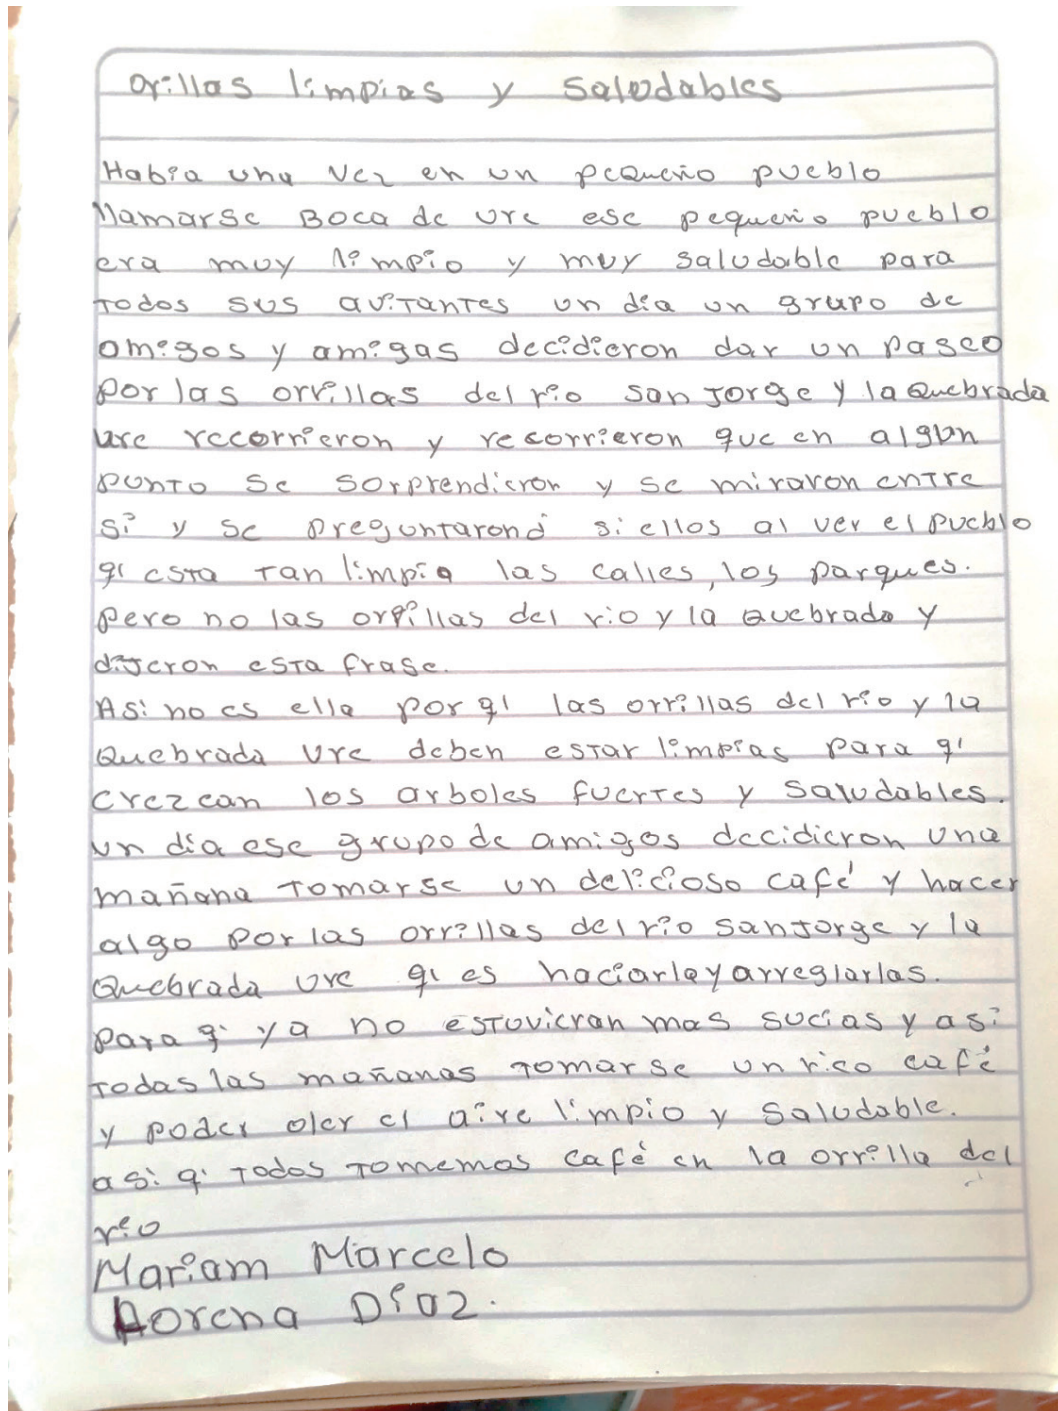 Orillas limpias y Saludables
Había una vez en un pequeño pueblo
llamarse Boca de ure ese pequeño pueblo
era muy limpio y muy saludable para
todos sus avitantes un día un grupo de
amigos y amigas decidieron dar un paseo
por las orrillas del río san Jorge y la Quebrada
ure recorrieron y recorrieron que en algun
punto se sorprendieron y se miraron entre
sí y se preguntarond si ellos al ver el pueblo
qi esta tan limpia las calles, los parques.
pero no las orrillas del rio y la Quebrada y
dijeron esta frase.
Asi no es ella por qi las orrillas del río y la
Quebrada Ure deben estar limpias para qi
crezcan los arboles fuertes y saludables.
un día ese grupo de amigos decidieron una
mañana tomarse un delicioso café y hacer
algo por las orrillas del río san Jorge y la
Quebrada ure qi es haciarlay arreglarlas.
para qi ya no estuvieran mas sucias y asi
todas las mañanas tomarse un rico café
y poder oler el aire limpio y saludable.
asi qi todos tomemos café en la orrilla del
río
Mariam Marcelo
Lorena Díaz.